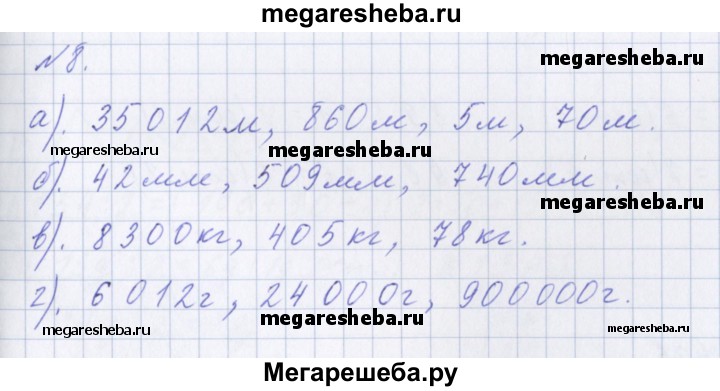 megaresheba.ru
№8.
megaresheba.ru
а). 35012м, 860м, 5м, 70м.
megaresheba.ru
megaresheba.ru
б). 42мм, 509мм, 740мм.
megaresheba.ru
в). 8300кг, 405кг, 78кг.
г). 6012г, 24000г, 900000г.
megaresheba.ru
megaresheba.ru
megaresheba.ru
Мегарешеба.ру